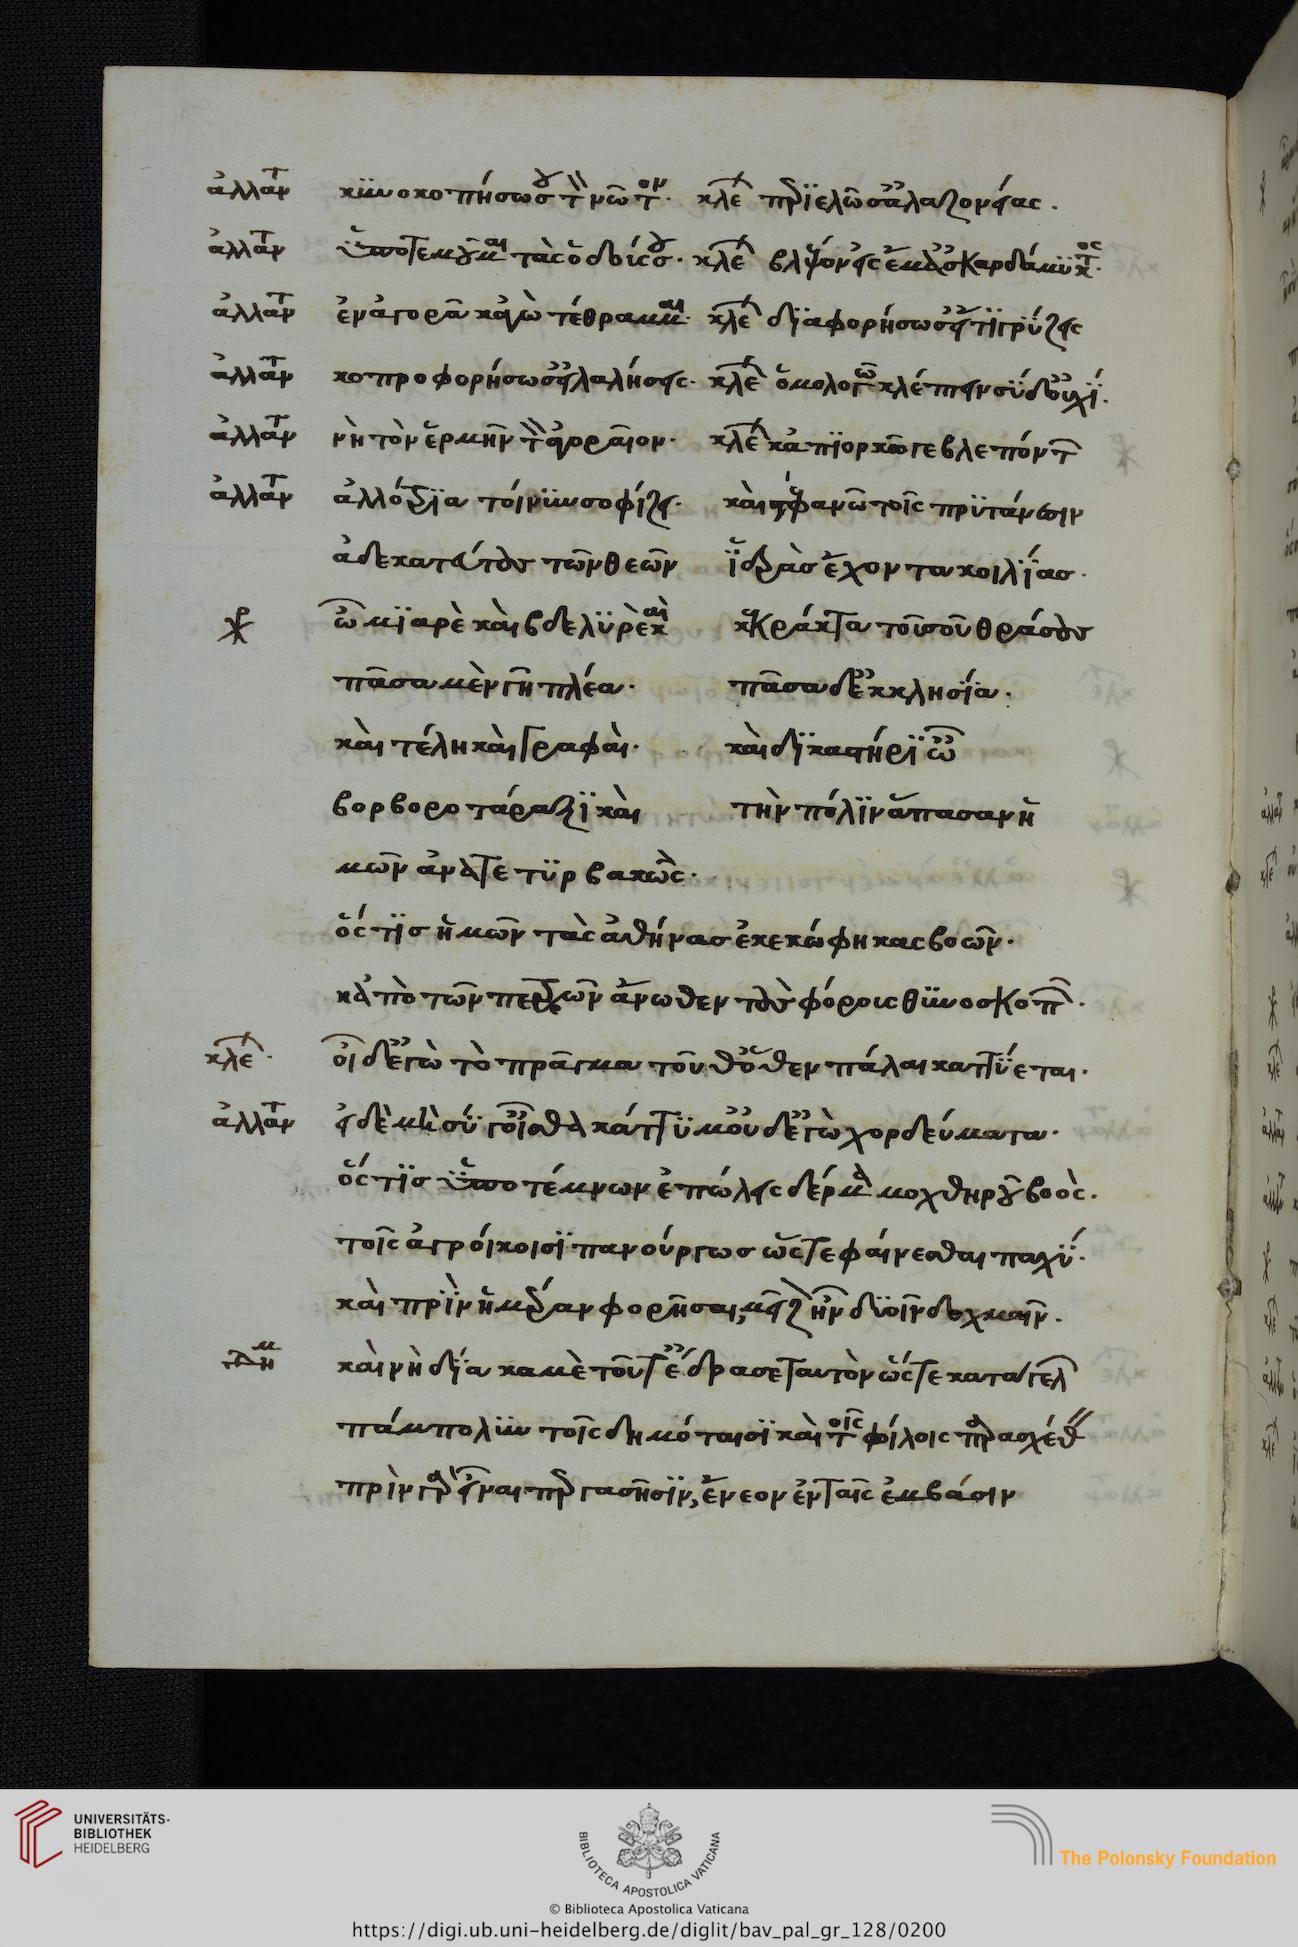 ἀλλαν κυνοκοπήσω σου τὸν νῶτον· κλε περιελῶ σ' ἀλαζονείας.
ἀλλαν ὑποτεμοῦμαι τὰς ὁδούς σου· κλε βλέψον εἰς ἔμ' ἀσκαρδάμυκτος·
ἀλλαν ἐν ἀγορᾶ κἀγὼ τέθραμμαι· κλε διαφορήσω σ' εἴ τι γρύζεις
ἀλλαν κοπροφορήσω σ' εἰ λαλήσεις· κλε ὁμολογῶ κλέπτειν σὺ δ' οὐχί.
ἀλλαν νὴ τὸν ἑρμῆν τὸν ἀγοραῖον· κλε κἀπιορκῶ γε βλεπόντων
ἀλλαν ἀλλότρια τοίνυν σοφίζει· καὶ φανῶ τοῖς πρυτάνεσιν
ἀδεκατεύτους τῶν θεῶν ἱερὰς ἔχοντα κοιλίας.
χο ὦ μιαρὲ καὶ βδελυρὲ καὶ κεκράκτα τοῦ σοῦ θράσους
πᾶσα μὲν γῆ πλέα· πᾶσα δ' ἐκκλησία.
καὶ τέλη καὶ γραφαὶ· καὶ δικαστήρι' ὦ
βορβοροτάραξι καὶ τὴν πόλιν ἅπασαν ἡ
μῶν ἀνατετυρβακὼς·
ὅστις ἡμῶν τὰς ἀθήνας ἐκεκώφηκας βοῶν·
κἀπὸ τῶν πετρῶν ἄνωθεν τοὺς φόρους θυνοσκοπῶν.
κλε οἶδ' ἐγὼ τὸ πρᾶγμα τοῦθ' ὅθεν πάλαι καττύεται.
ἀλλαν εἰ δὲ μὴ σύ γ' οἶσθα κάττυμ' οὐδ' ἐγὼ χορδεύματα·
ὅστις ὑποτέμνων ἐπώλεις δέρμα μοχθηροῦ βοὸς.
τοῖς ἀγροίκοισι πανούργως ὥστε φαίνεσθαι παχύ.
καὶ πρὶν ἡμέραν φορῆσαι, μεῖζ' ἦν δυοῖν δοχμαῖν.
δημ καὶ νὴ δία καμὲ τοῦτ' ἔδρασε ταυτὸν ὥστε καταγελ
πάμπολυν τοῖς δημόταισι καὶ τοῖς φίλοις παρασχέθ
πρὶν γὰρ εἶναι περγασῆσιν, ἔνεον ἐν ταῖς ἐμβάσιν
UNIVERSITÄTS-
BIBLIOTHEK
HEIDELBERG
BIBLIOTECA APOSTOLICA VATICANA
The Polonsky Foundation
© Biblioteca Apostolica Vaticana
https://digi.ub.uni-heidelberg.de/diglit/bav_pal_gr_128/0200